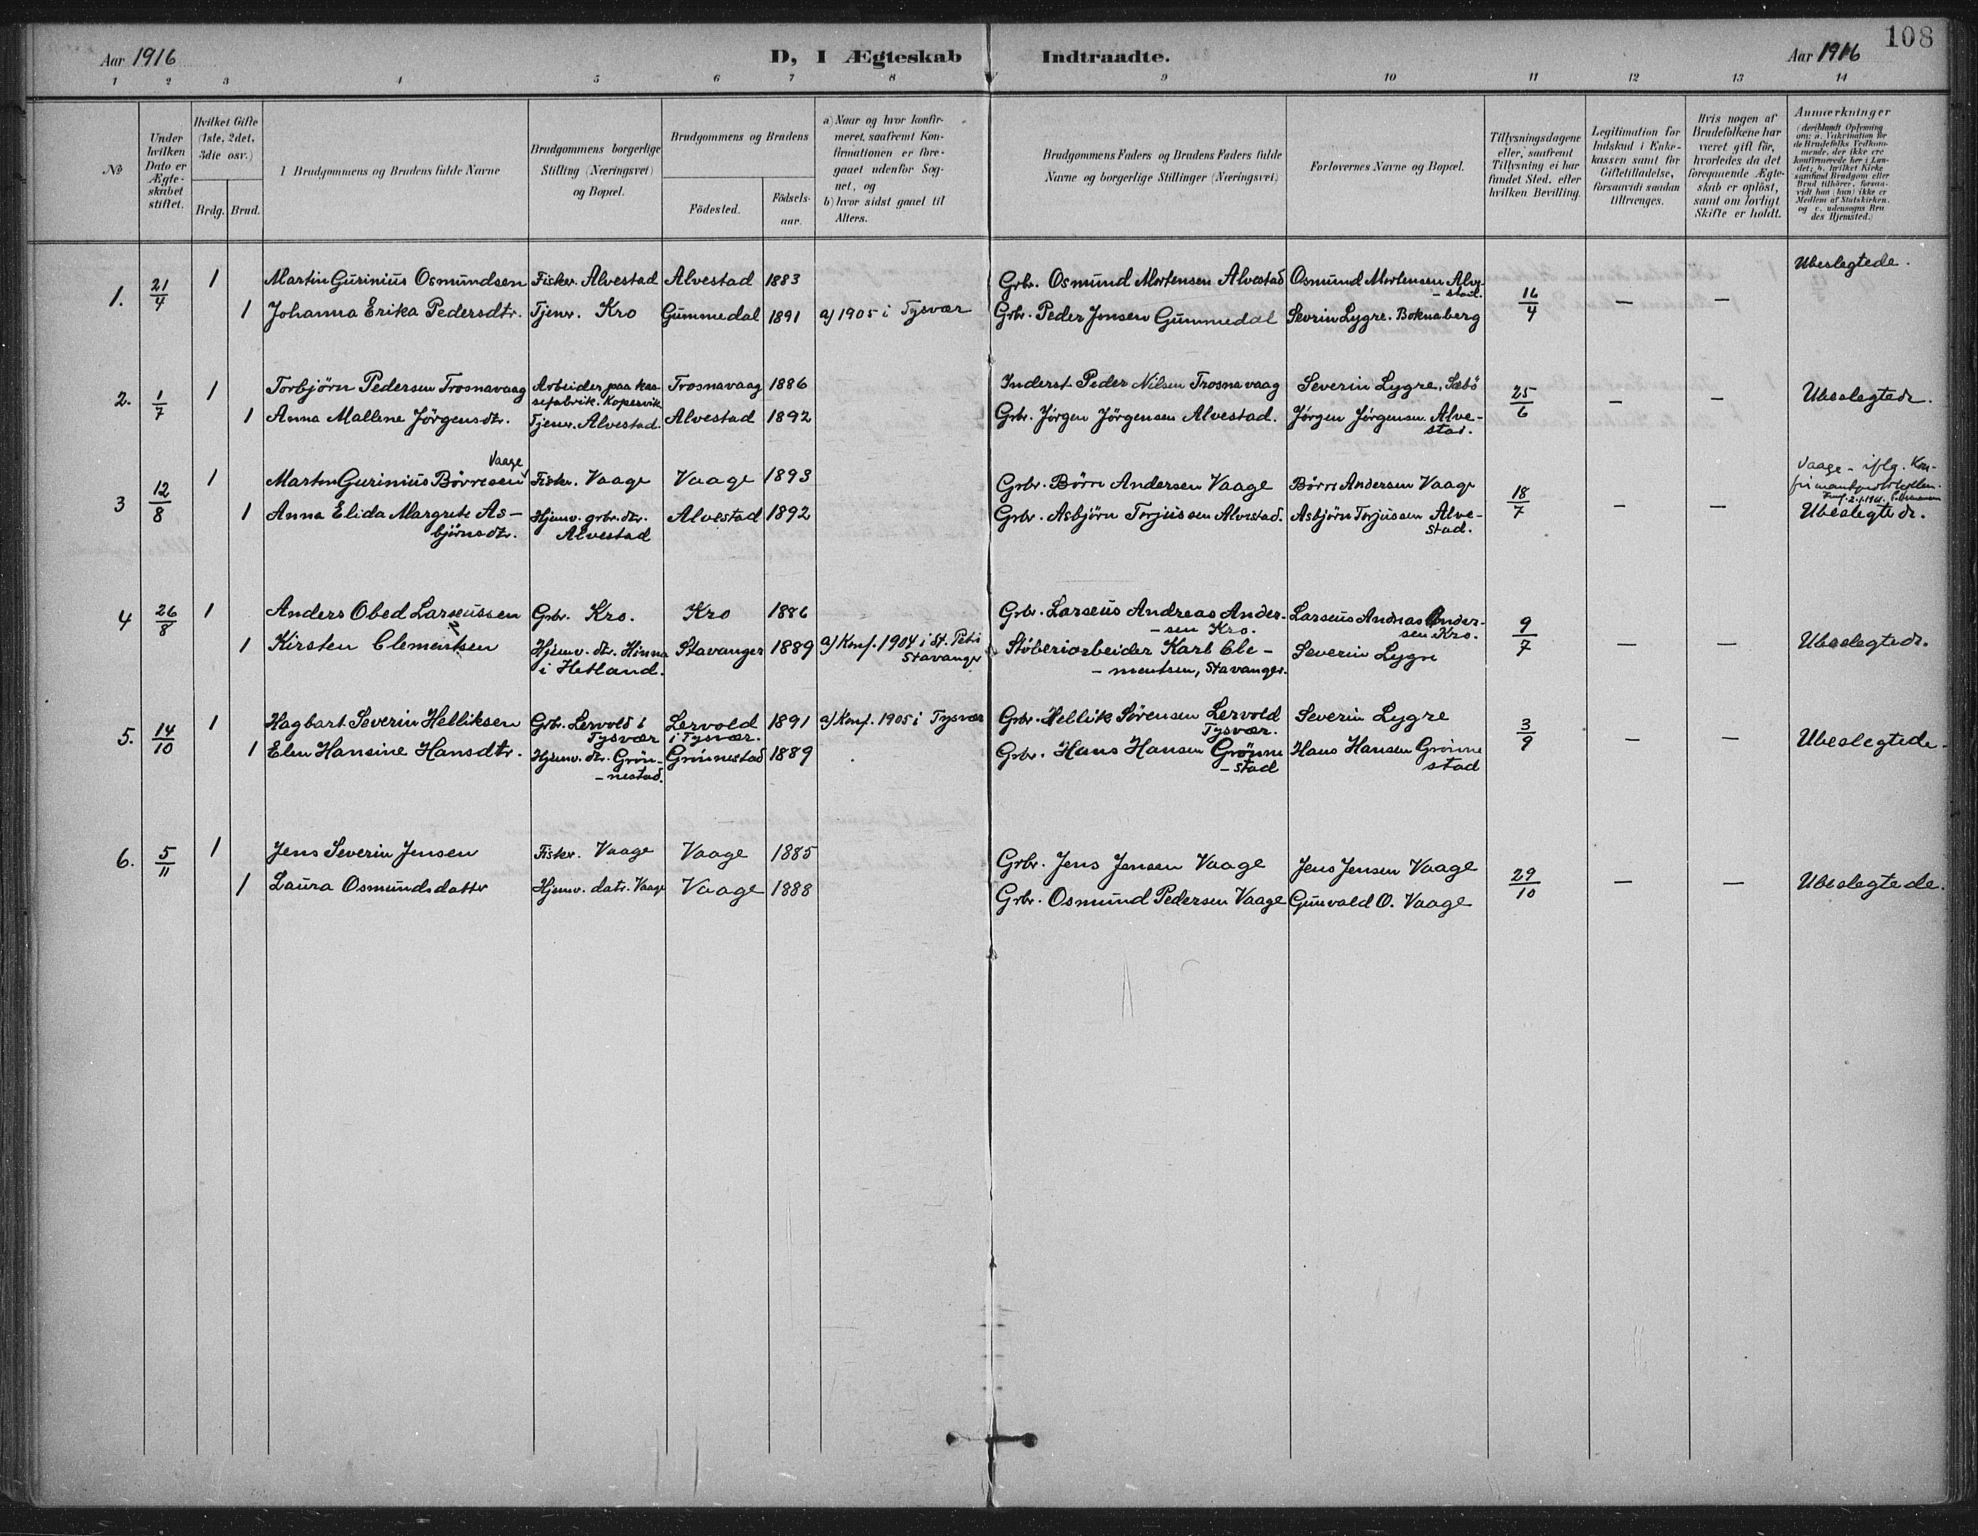 108
Aar 1916
D, I Ægteskab Indtraadte.
Aar 1916
1 2 3 4 5 6 7 8 9 10 11 12 13 14
№
Under hvilken Dato er Ægteskabet stiftet.
Hvilket Gifte (1ste, 2det, 3die osv.)
Brdg. Brud.
I Brudgommens og Brudens fulde Navne
Brudgommens borgerlige Stilling (Næringsvei) og Bopæl.
Brudgommens og Brudens
Födested.
Födsels-aar.
a) Naar og hvor konfirmeret, saafremt Konfirmationen er foregaaet udenfor Sognet, og
b) hvor sidst gaaet til Alters.
Brudgommens Faders og Brudens Faders fulde Navne og borgerlige Stillinger (Næringsvei)
Forlovernes Navne og Bopæl.
Tillysningsdagene eller, saafremt Tillysning ei har fundet Sted, efter hvilken Bevilling.
Legitimation for Indskud i Enkekassen samt for Giftetilladelse, forsaavidt saadan tiltrænges.
Hvis nogen af Brudefolkene har været gift för, hvorledes da det foregaaende Ægteskab er oplöst, samt om lovligt Skifte er holdt.
Anmærkninger
(deriblandt Oplysning om: a. Vakcination for de Brudefolks Vedkommende, der ikke ere konfirmerede her i Landet; b. hvilket Kirkesamfund Brudgom eller Brud tilhörer, forsaavidt han (hun) ikke er Medlem af Statskirken, og c. udensogns Brudes Hjemsted.)
1. 21/4 1 Martin Gurinius Osmundsen Fisker. Alvestad Alvestad 1883 Grbr. Osmund Mortensen Alvestad Osmund Mortensen Alve-stad. 16/4 — — Ubeslegtede.
1 Johanna Erika Pedersdtr. Tjener. Kro Gummedal 1891 a/ 1905 i Tysvær Grbr. Peder Jonsen Gummedal Sevrin Lygre. Boknaberg
2. 1/7 1 Torbjörn Pedersen Trosnavaag Arbeider paa kassefabrik. Kopervik Trosnavaag 1886 Inderst Peder Nilsen Trosnavaag Severin Lygre, Sæbö 25/6 — — Ubeslegtede.
1 Anna Mallene Jörgensdtr. Tjenr. Alvestad Alvestad 1892 Grbr. Jörgen Jörgensen Alvestad. Jörgen Jörgensen Alve-stad.
Vaage
3 12/8 1 Martin Gurinius Börresen Fisker. Vaage Vaage 1893 Grbr. Börre Andersen Vaage Börre Andersen Vaage 18/7 — — Vaage - iflg. Kon-firmantprotokollen.
1 Anna Elida Margrete As-björnsdtr. Hjemv. grbr.dtr. Alvestad Alvestad 1892 Grbr. Asbjörn Torjussen Alvestad. Asbjörn Torjussen Alve-stad. Ubeslegtede.
4 26/8 1 Anders Obed Larseussen Grbr. Kro. Kro 1886 Grbr. Larseus Andreas Ander-sen Kro. Larseus Andreas Ander-sen Kro. 9/7 — — Ubeslegtede.
1 Kirsten Clementsen Hjemv. dtr. Hinna i Hetland. Stavanger 1889 a/ Konf. 1904 i St. Petri Stavanger Støberiarbeider Karl Cle-mentsen, Stavanger. Severin Lygre
5. 14/10 1 Hagbart Severin Helliksen Grbr. Lervold i Tysvær Lervold i Tysvær. 1891 a/ Konf. 1905 i Tysvær Grbr. Hellik Sörensen Lervold Tysvær. Severin Lygre 3/9 — — Ubeslegtede.
1 Elen Hansine Hansdtr. Hjemv. dtr. Grön-nestad. Grönnestad 1889 Grbr. Hans Hansen Grönne-stad Hans Hansen Grönne stad
6. 5/11 1 Jens Severin Jensen Fisker. Vaage Vaage 1885 Grbr. Jens Jensen Vaage Jens Jensen Vaage 29/10 — — Ubeslegtede.
1 Laura Osmundsdatter Hjemv. datr. Vaage Vaage 1888 Grbr. Osmund Pedersen Vaage Gunvald O. Vaage